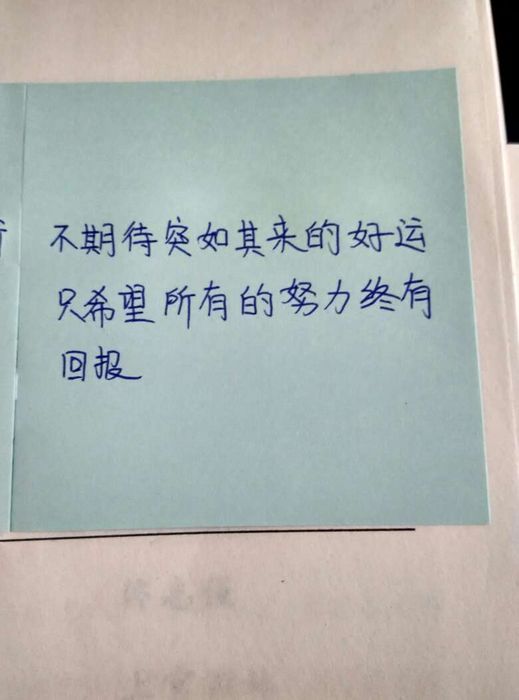 不期待突如其来的好运
只希望所有的努力终有
回报